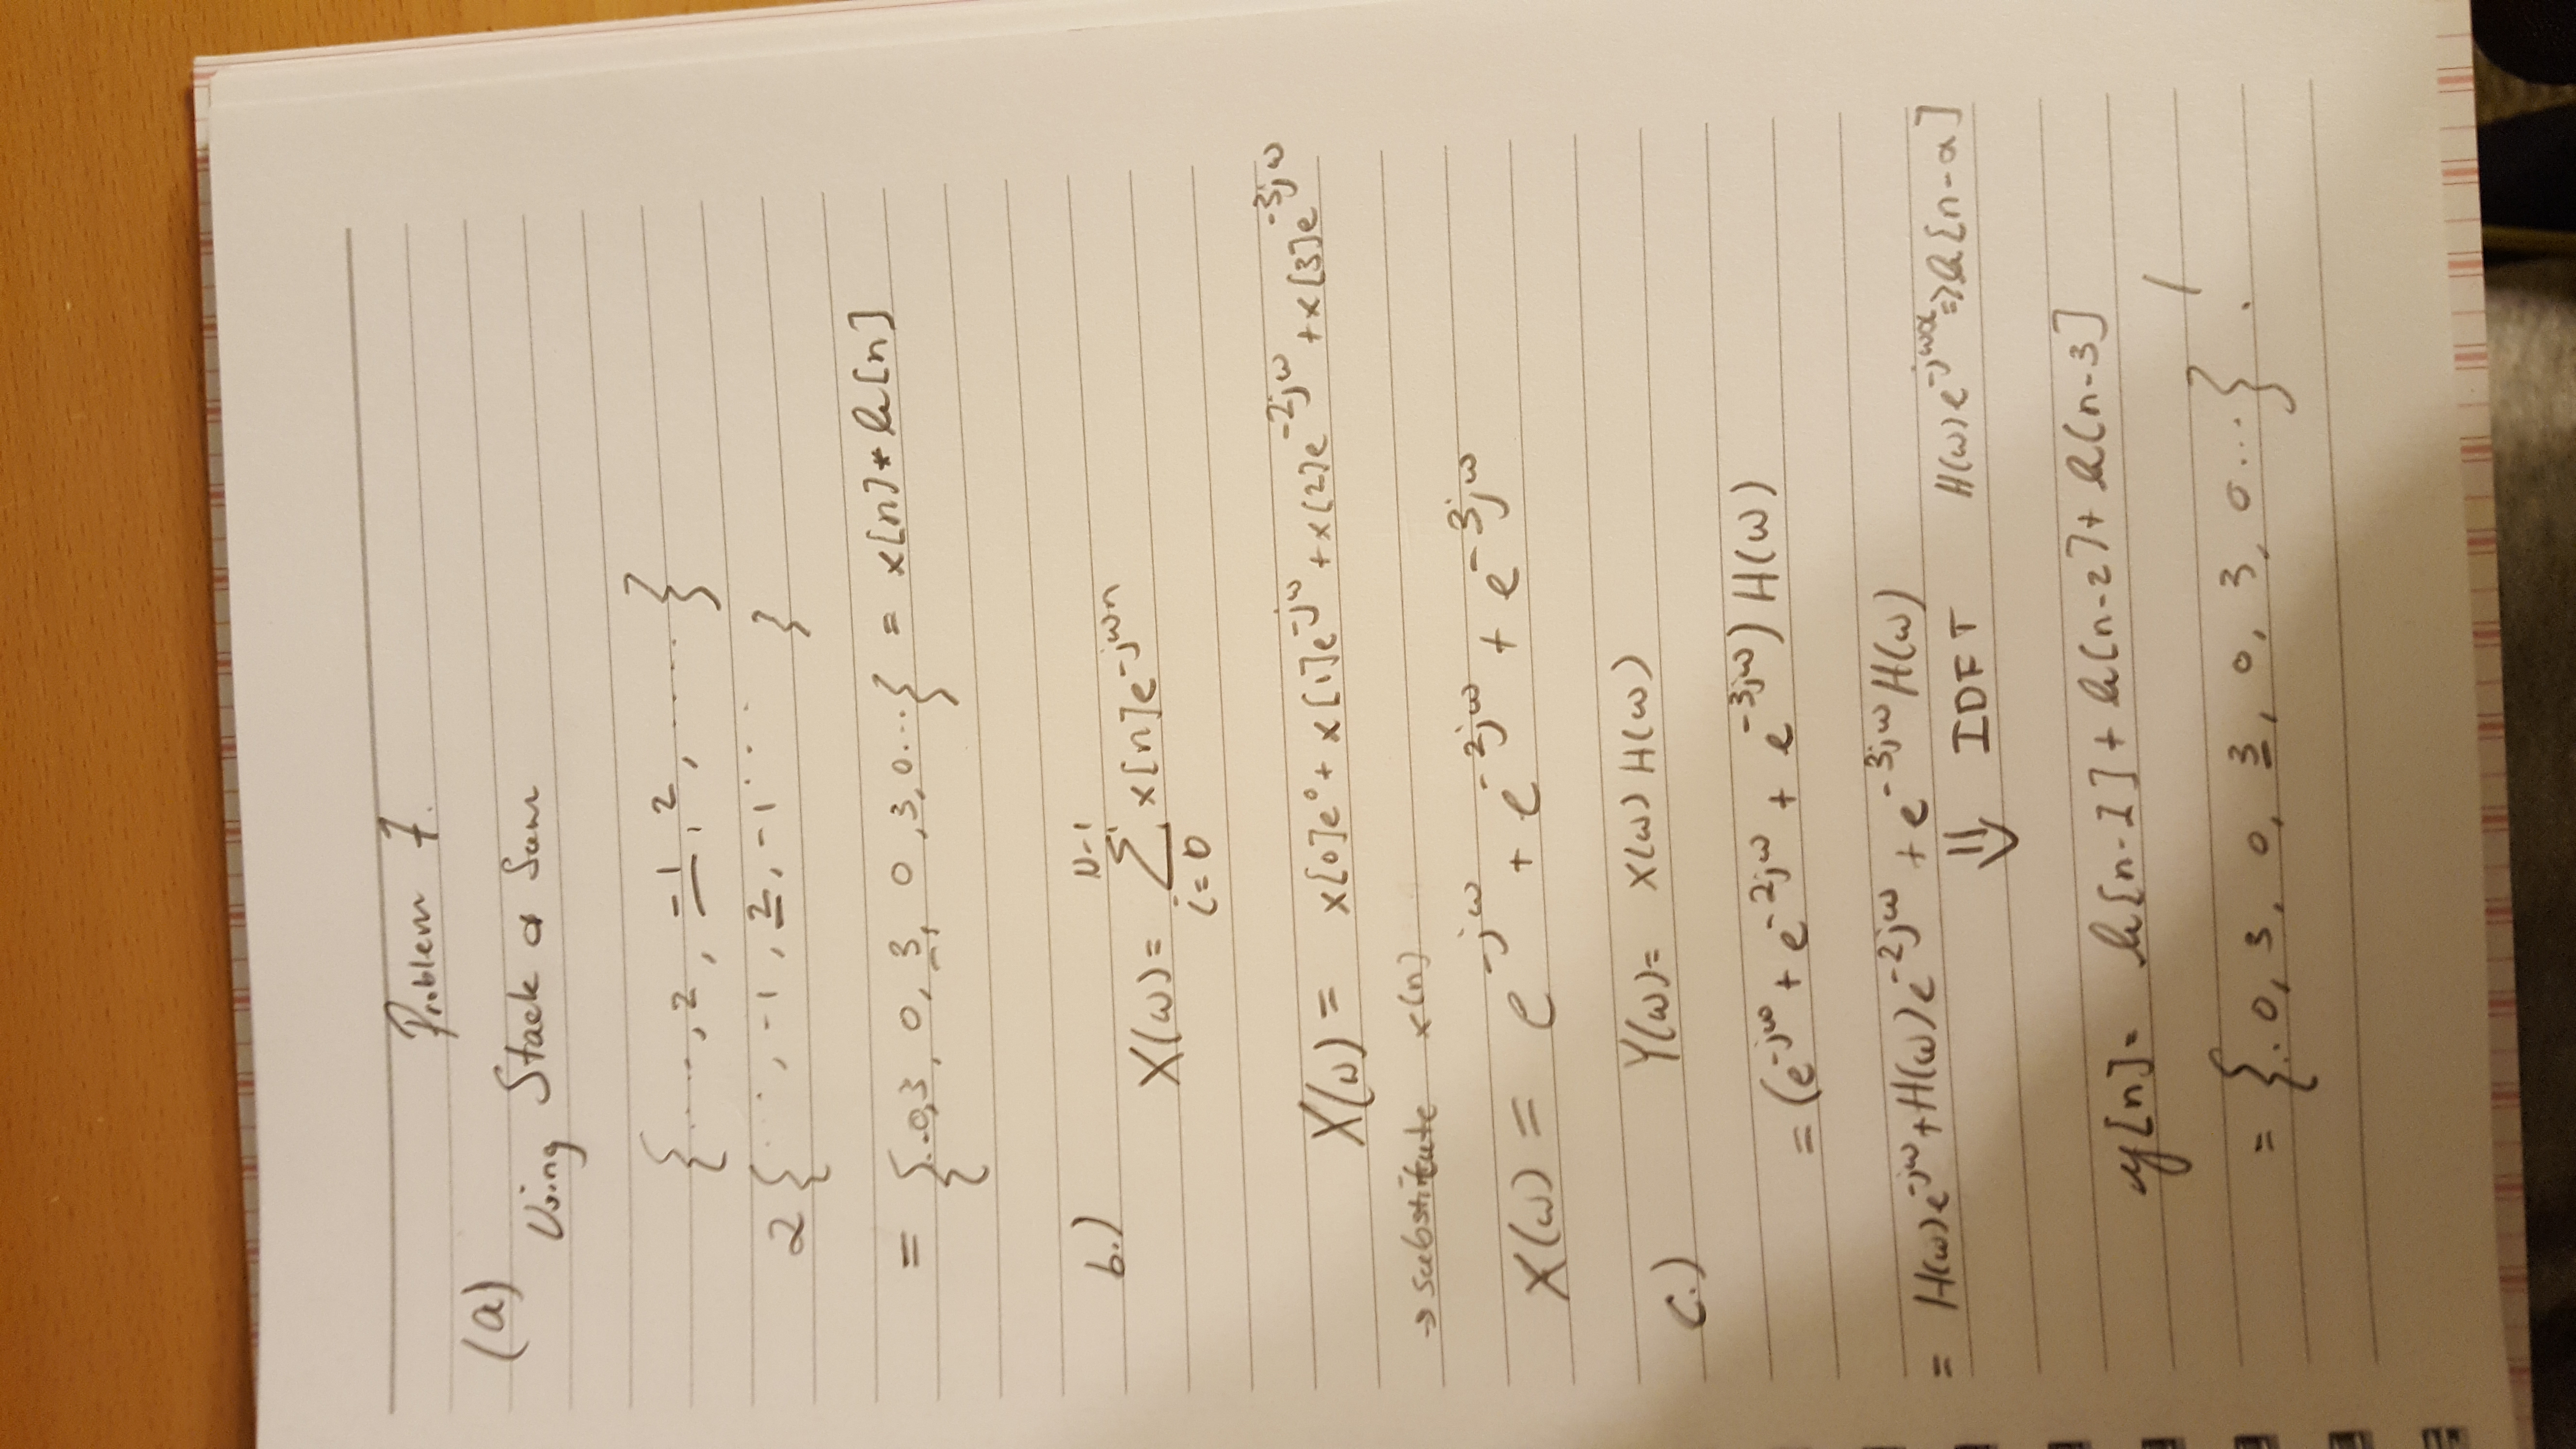 Problem 7.
(a)
Using Stack & Sum
{ ....., 2, -1, 2, ..... }
2 { ..., -1, 2, -1 ... }
= { ..0,3, 0, 3, 0, 3, 0... } = x[n] * h[n]
b.) X(ω) = Σ_{i=0}^{N-1} x[n]e^{-jωn}
X(ω) = x[0]e^0 + x[1]e^{-jω} + x[2]e^{-2jω} + x[3]e^{-3jω}
→ substitute x[n]
X(ω) = e^{-jω} + e^{-2jω} + e^{-3jω}
c.) Y(ω) = X(ω) H(ω)
= (e^{-jω} + e^{-2jω} + e^{-3jω}) H(ω)
= H(ω)e^{-jω} + H(ω)e^{-2jω} + e^{-3jω} H(ω)
⇓ IDFT H(ω)e^{-jωα} => h[n-α]
y[n] = h[n-1] + h[n-2] + h[n-3]
= { .. 0, 3, 0, 3, 0, 3, 0... } !